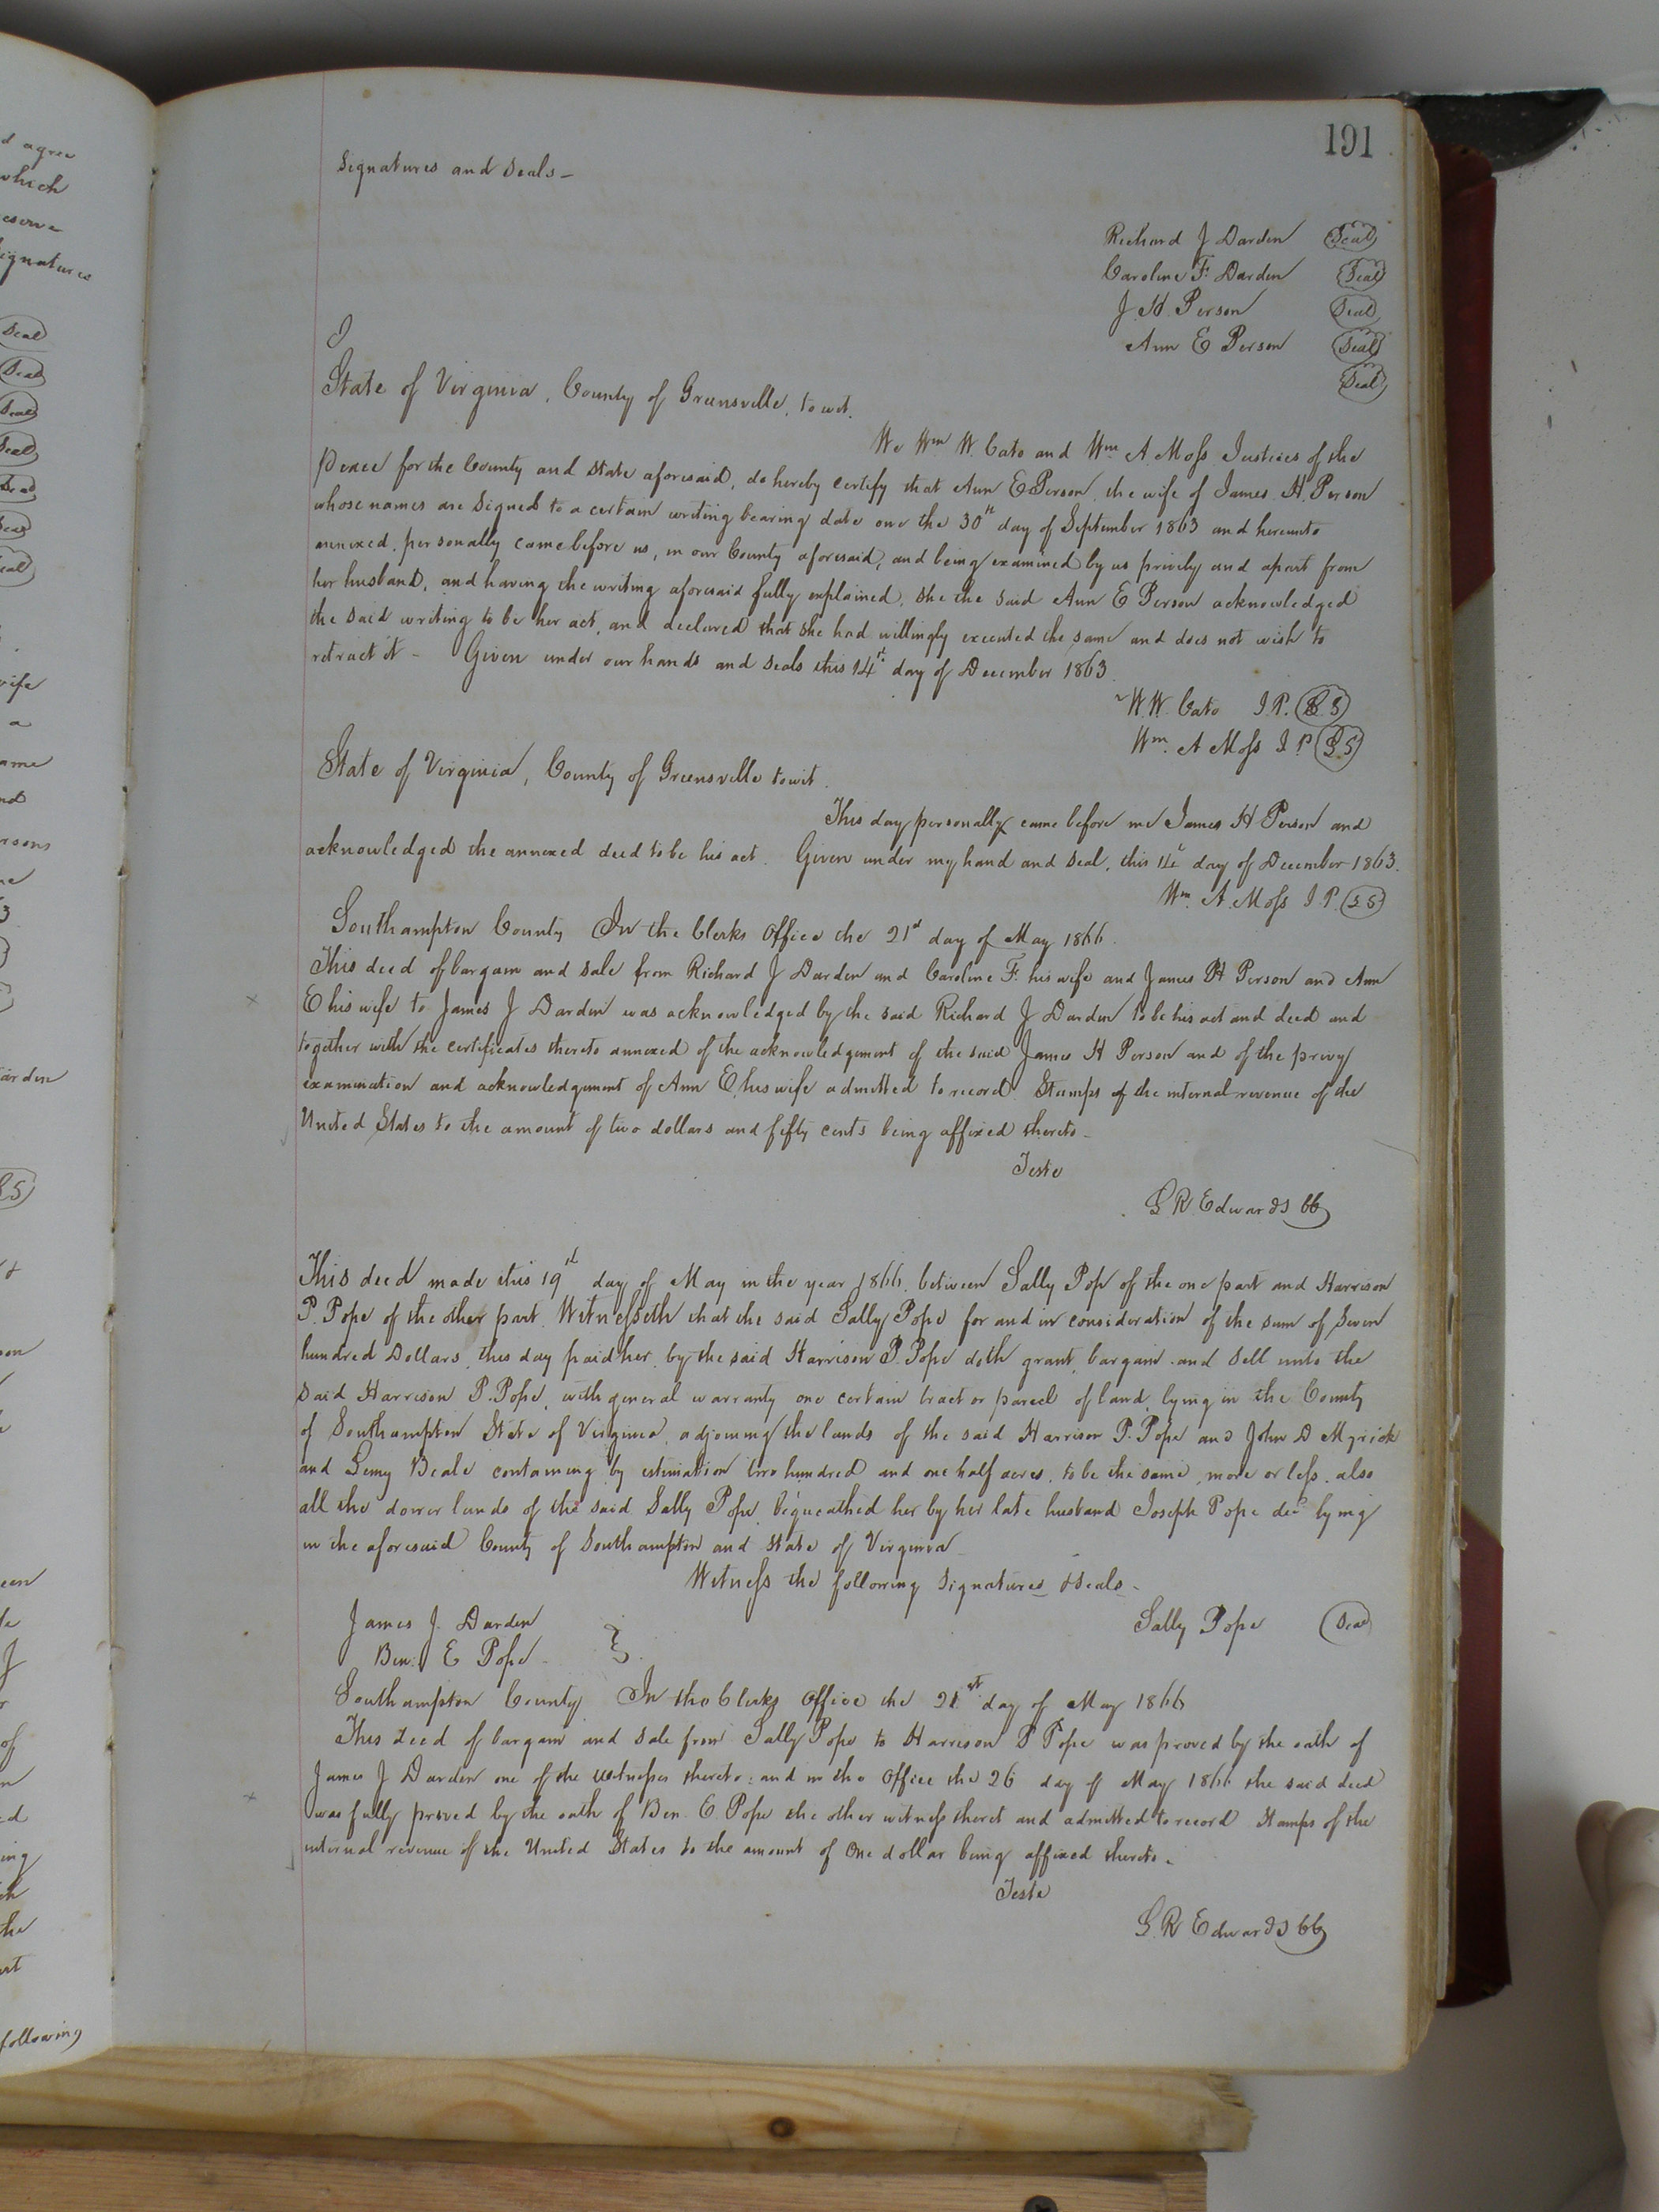 191
Signatures and Seals -
Richard J Darden Seal
Caroline F. Darden Seal
J. H. Person Seal
Ann E Person Seal
Seal
State of Virginia, County of Greensville, to wit.
We Wm W. Cato and Wm A. Moss Justices of the
peace for the County and State aforesaid, do hereby certify that Ann E Person, the wife of James H. Person
whose names are signed to a certain writing bearing date on the 30th day of September 1863 and hereunto
annexed, personally came before us, in our County aforesaid, and being examined by us privily and apart from
her husband, and having the writing aforesaid fully explained, she the said Ann E Person acknowledged
the said writing to be her act, and declared that she had willingly executed the same and does not wish to
retract it - Given under our hands and seals this 14th day of December 1863.
W. W. Cato J. P. L S
Wm. A Moss J P L S
State of Virginia, County of Greensville to wit.
This day personally came before me James H Person and
acknowledged the annexed deed to be his act. Given under my hand and seal, this 14 day of December 1863.
Wm. A. Moss J. P. L S
Southampton County In the Clerks Office the 21st day of May 1866.
This deed of bargain and sale from Richard J Darden and Caroline F. his wife and James H Person and Ann
E his wife to James J Darden was acknowledged by the said Richard J Darden to be his act and deed and
together with the certificates thereto annexed of the acknowledgment of the said James H Person and of the privy
examination and acknowledgment of Ann E, his wife admitted to record. Stamps of the internal revenue of the
United States to the amount of two dollars and fifty cents being affixed thereto -
Teste
L R Edwards CC
This deed made this 19th day of May in the year 1866. between Sally Pop of the one part and Harrison
P. Pope of the other part. Witnesseth that the said Sally Pope for and in consideration of the sum of Seven
hundred Dollars, this day paid her, by the said Harrison P. Pope doth grant, bargain and sell unto the
said Harrison P. Pope, with general warranty one certain tract or parcel of land, lying in the County
of Southampton State of Virginia, adjoining the lands of the said Harrison P. Pope and John D Myrick
and Beale containing by estimation two hundred and one half acres, to be the same, more or less, also
all the dower lands of the said Sally Pope, bequeathed her by her late husband Joseph Pope decd lying
in the aforesaid County of Southampton and State of Virginia
Witness the following Signatures & seals -
James J. Darden Sally Pope Seal
Ben. E Pope
Southampton County In the Clerks Office the 21st day of May 1866
This deed of bargain and sale from Sally Pope to Harrison P Pope was proved by the oath of
James J Darden one of the witnesses thereto: and in the Office the 26 day of May 1866 the said deed
was fully proved by the oath of Ben. E. Pope the other witness thereto and admitted to record Stamps of the
internal revenue of the United States to the amount of One dollar being affixed thereto.
Teste
L. R Edwards CC